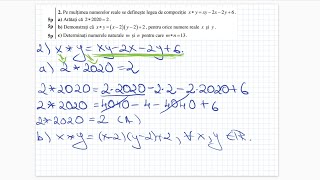 2. Pe mulțimea numerelor reale se definește legea de compoziție x∗y = xy−2x−2y+6.
5p a) Arătați că 2∗2020 = 2.
5p b) Demonstrați că x∗y = (x−2)(y−2)+2, pentru orice numere reale x și y.
5p c) Determinați numerele naturale m și n pentru care m∗n = 13.
2) x∗y = xy−2x−2y+6.
a) 2∗2020 = 2
2∗2020 = 2·2020−2·2−2·2020+6
2∗2020 = 4040−4−4040+6
2∗2020 = 2 (A)
b) x∗y = (x−2)(y−2)+2, ∀ x,y ∈ ℝ.